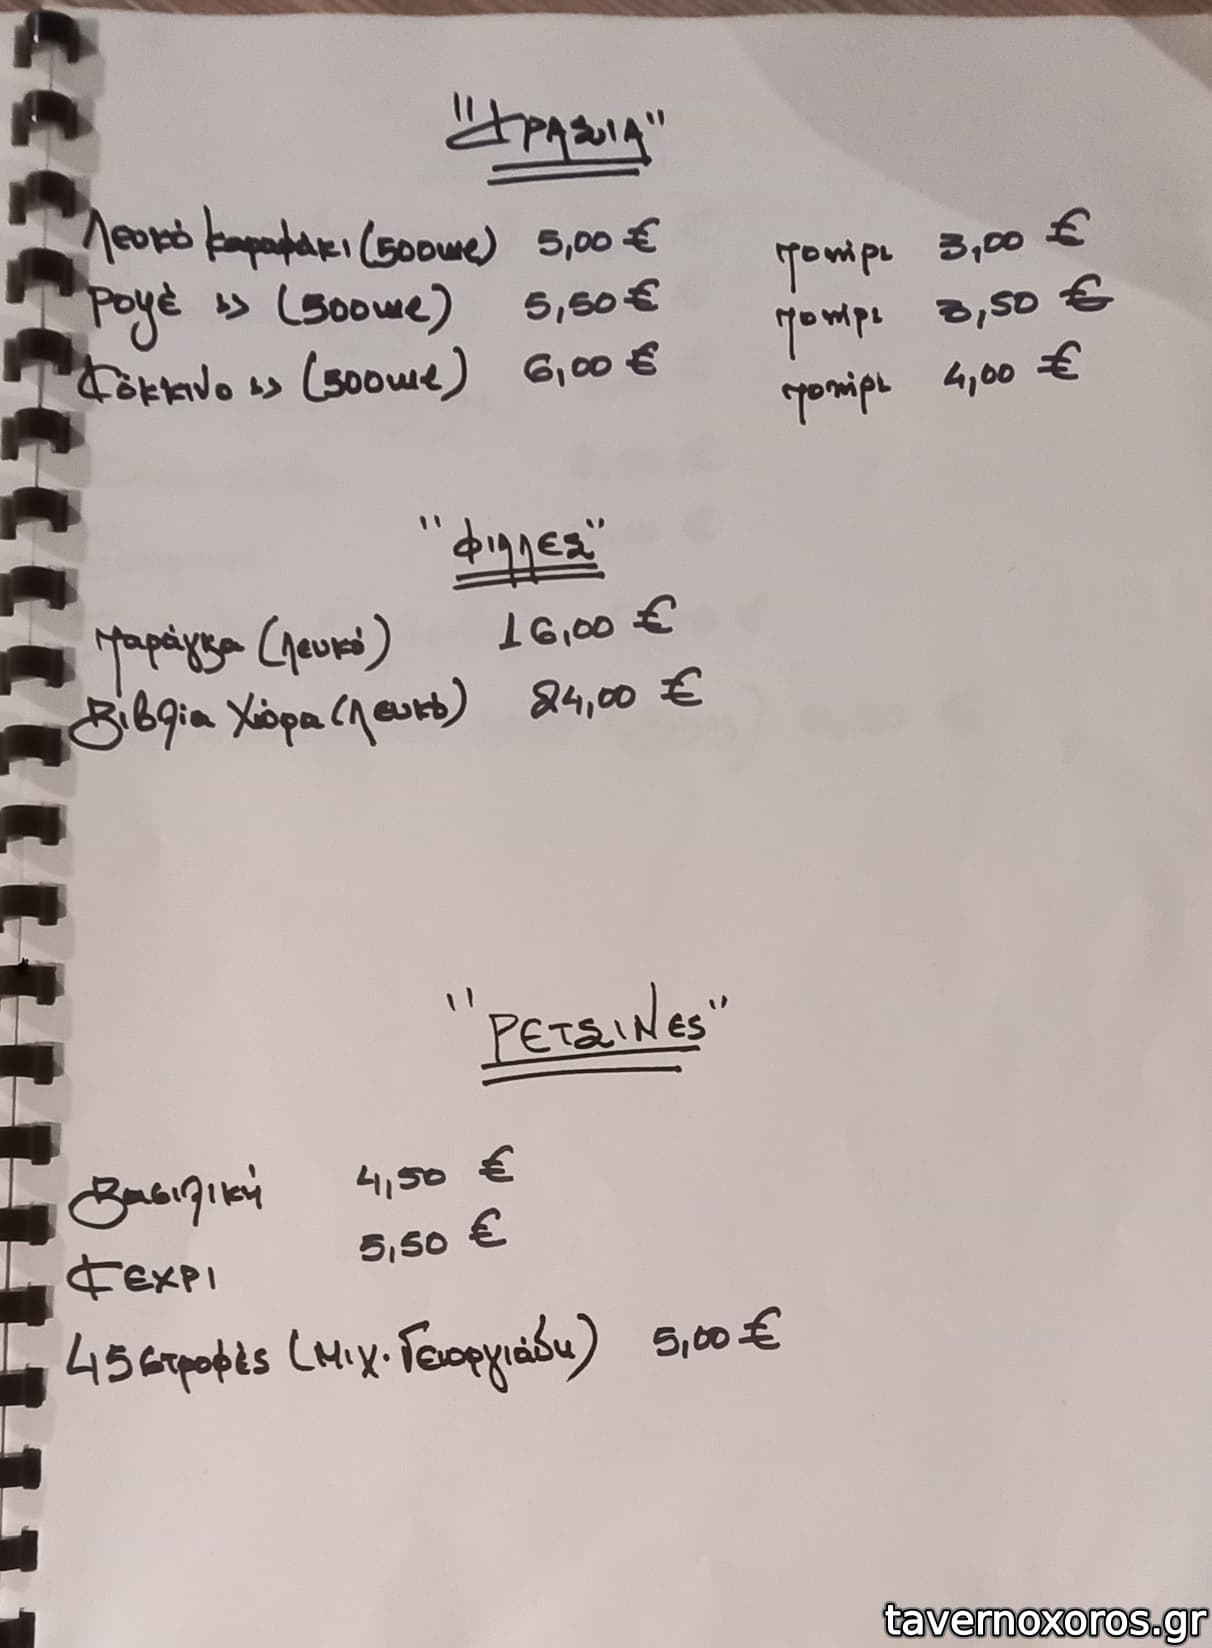 "ΚΡΑΣΙΑ"
Λευκό καραφάκι (500ml) 5,00 € ποτήρι 3,00 €
Ροζέ >> (500ml) 5,50 € ποτήρι 3,50 €
Κόκκινο >> (500ml) 6,00 € ποτήρι 4,00 €
"ΦΙΛΛΕΣ"
Παράγκα (λευκό) 16,00 €
Βιβλία Χώρα (λευκό) 24,00 €
"ΡΕΤΣΙΝΕΣ"
Βασιλική 4,50 €
ΚΕΧΡΙ 5,50 €
45 στροφές (Μιχ. Γεωργιάδη) 5,00 €
tavernoxoros.gr